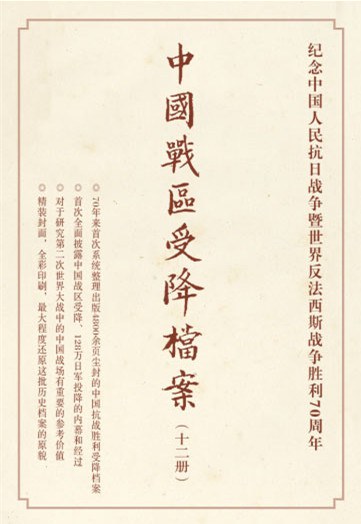 纪念中国人民抗日战争暨世界反法西斯战争胜利70周年
中國戰區受降檔案（十二册）
◎70年来首次系统整理出版4800余页尘封的中国抗战胜利受降档案
◎首次全面披露中国战区受降、128万日军投降的内幕和经过
◎对于研究第二次世界大战中的中国战场有重要的参考价值
◎精装封面，全彩印刷，最大程度还原这批历史档案的原貌